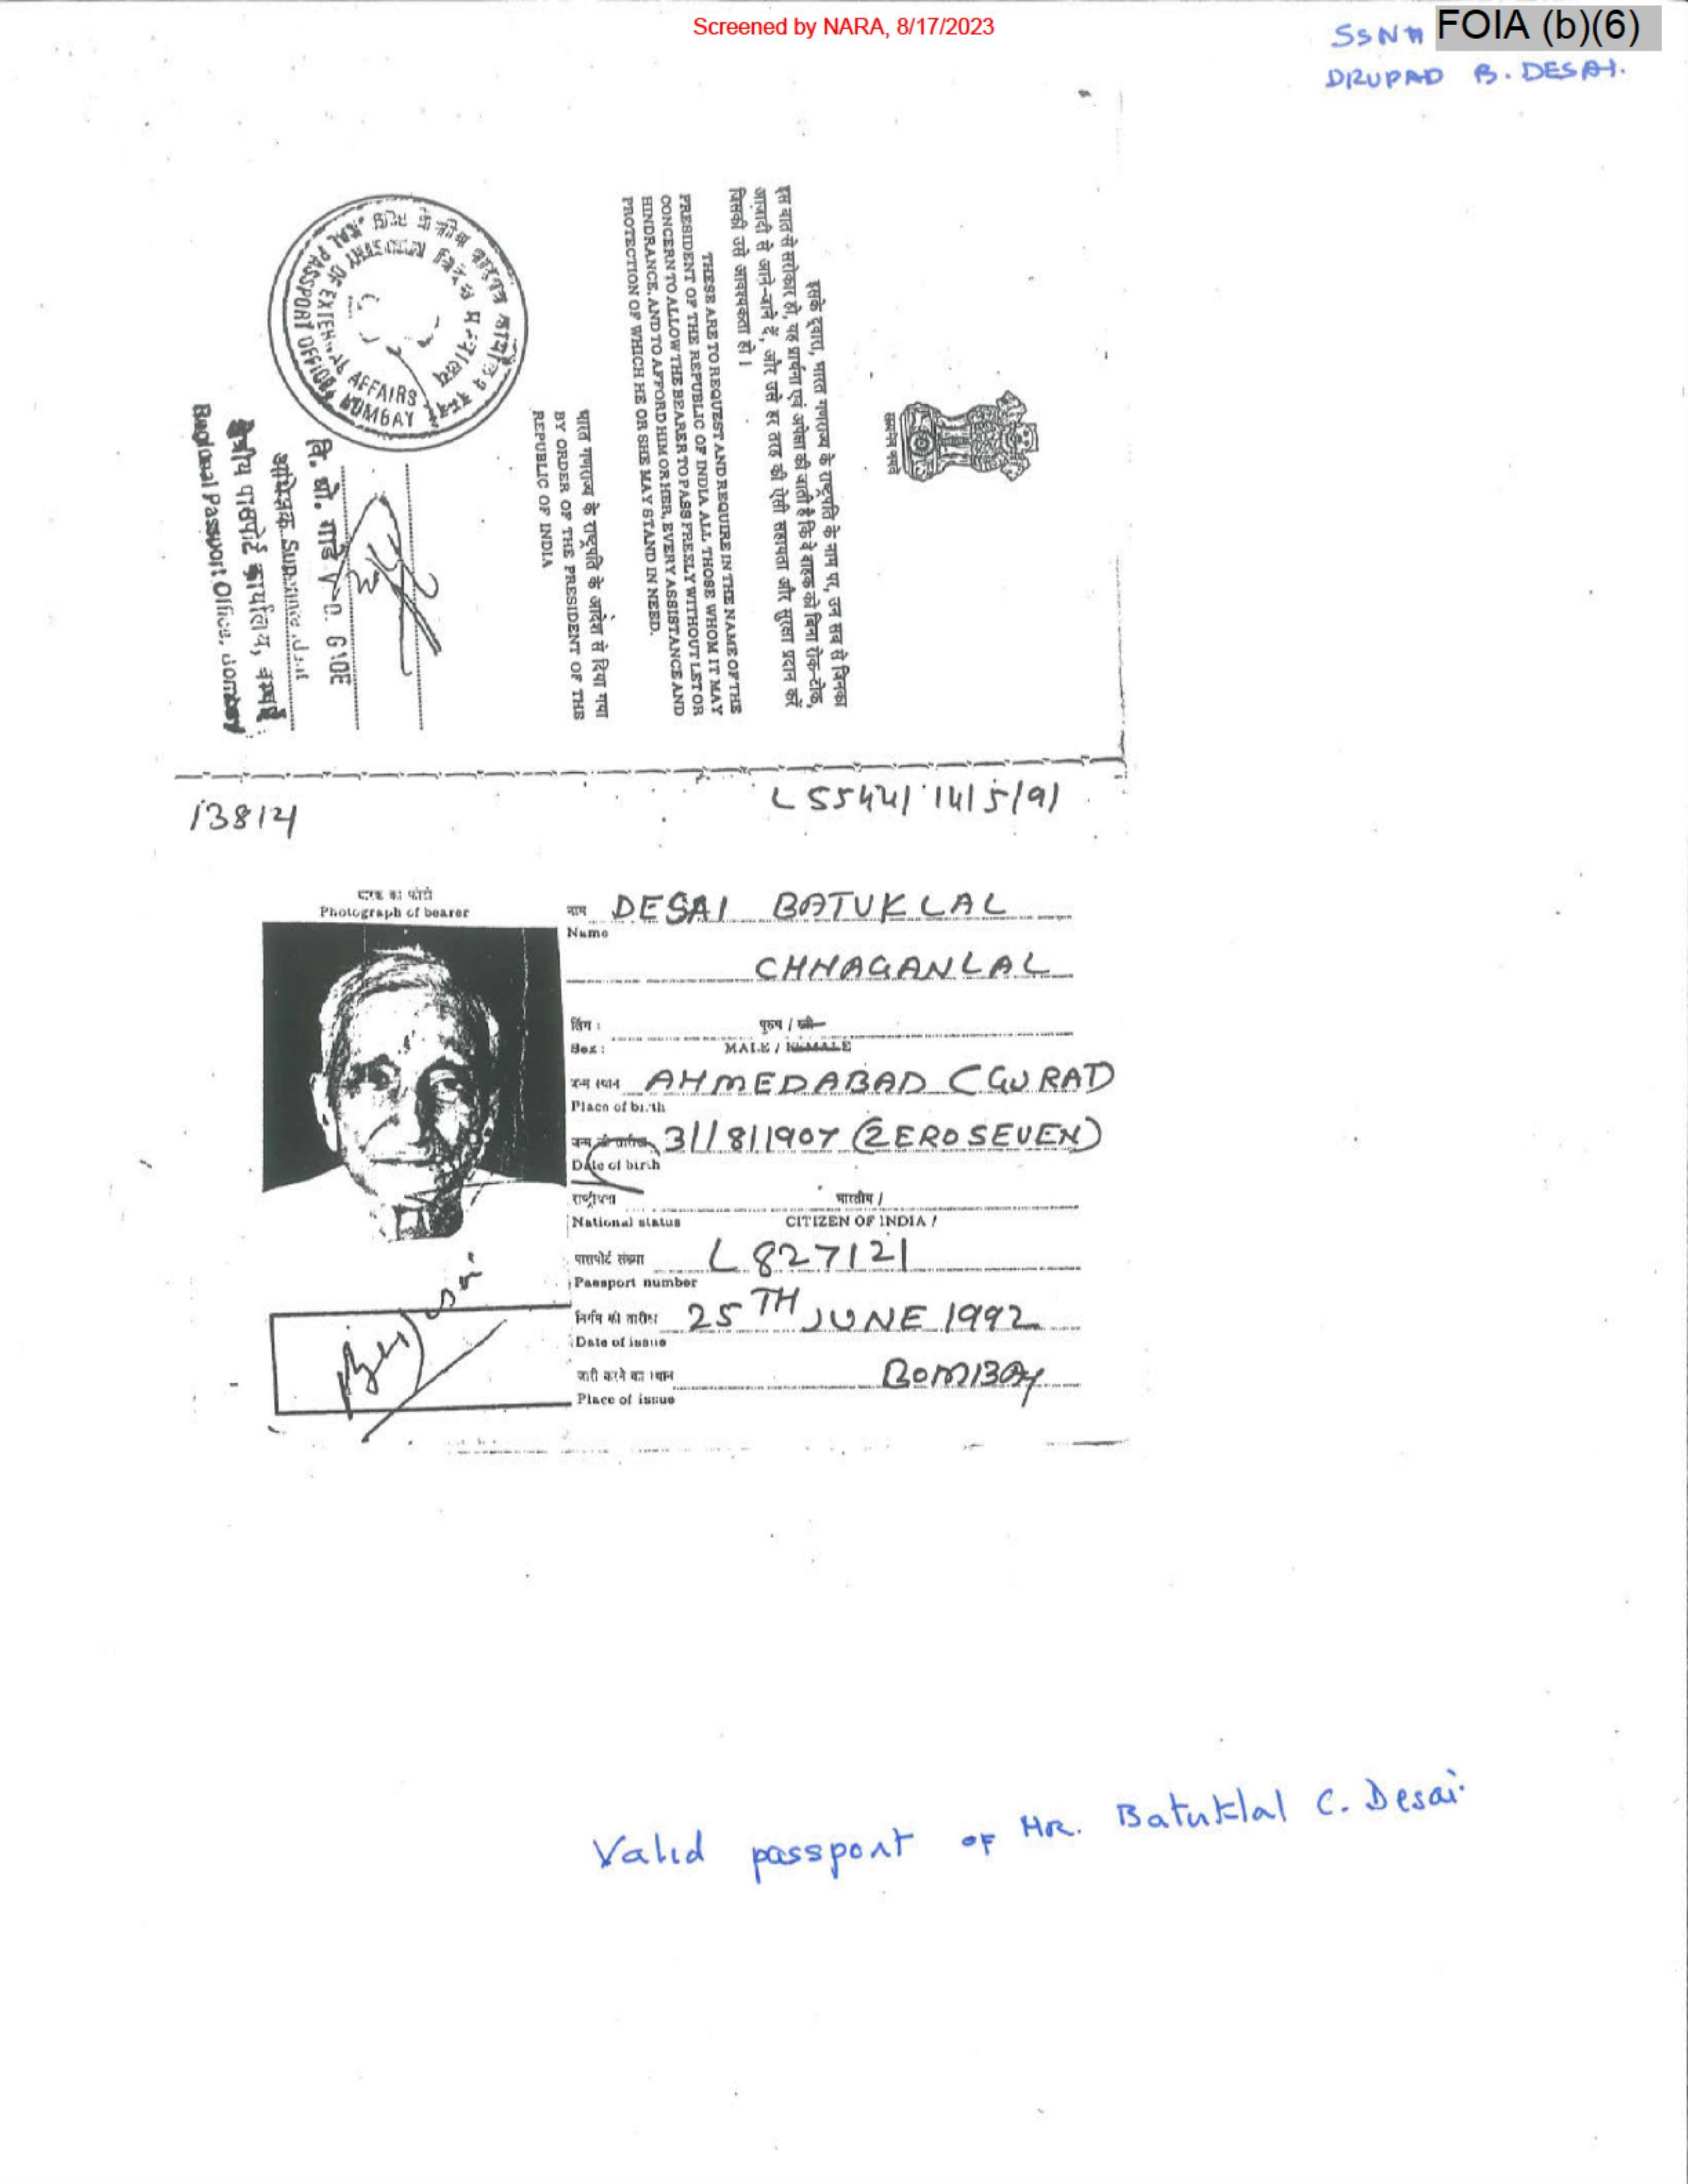 Screened by NARA, 8/17/2023
SSN# FOIA (b)(6)
DRUPAD B. DESAI.
सत्यमेव जयते
इसके द्वारा, भारत गणराज्य के राष्ट्रपति के नाम पर, उन सब से जिनका
इस बात से सरोकार हो, यह प्रार्थना एवं अपेक्षा की जाती है कि वे वाहक को बिना रोक-टोक,
आज़ादी से आने-जाने दें, और उसे हर तरह की ऐसी सहायता और सुरक्षा प्रदान करें
जिसकी उसे आवश्यकता हो।
THESE ARE TO REQUEST AND REQUIRE IN THE NAME OF THE
PRESIDENT OF THE REPUBLIC OF INDIA ALL THOSE WHOM IT MAY
CONCERN TO ALLOW THE BEARER TO PASS FREELY WITHOUT LET OR
HINDRANCE, AND TO AFFORD HIM OR HER, EVERY ASSISTANCE AND
PROTECTION OF WHICH HE OR SHE MAY STAND IN NEED.
भारत गणराज्य के राष्ट्रपति के आदेश से दिया गया
BY ORDER OF THE PRESIDENT OF THE
REPUBLIC OF INDIA
PASSPORT OFFICE
MINISTRY OF EXTERNAL AFFAIRS
BOMBAY
अधीक्षक
क्षेत्रीय पासपोर्ट कार्यालय, बम्बई
Regional Passport Office, Bombay
13812/
L 55441 14/5/91
Photograph of bearer
नाम DESAI BATUKLAL
Name
CHHAGANLAL
लिंग : पुरुष / स्त्री
Sex : MALE / FEMALE
जन्म स्थान AHMEDABAD (GURAT)
Place of birth
31/8/1907 (ZERO SEVEN)
Date of birth
भारतीय /
National status CITIZEN OF INDIA /
L 827121
Passport number
25TH JUNE 1992
Date of issue
जारी करने का स्थान BOMBAY
Place of issue
Valid passport of MR. Batuklal C. Desai.